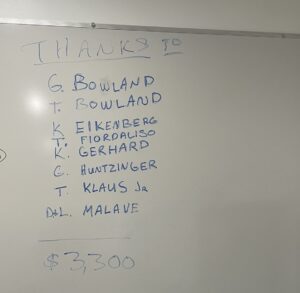 THANKS TO
G. BOWLAND
T. BOWLAND
K EIKENBERG
T. FIORDALISO
K. GERHARD
C. HUNTZINGER
T. KLAUS JR
D+L. MALAVE
$3,300